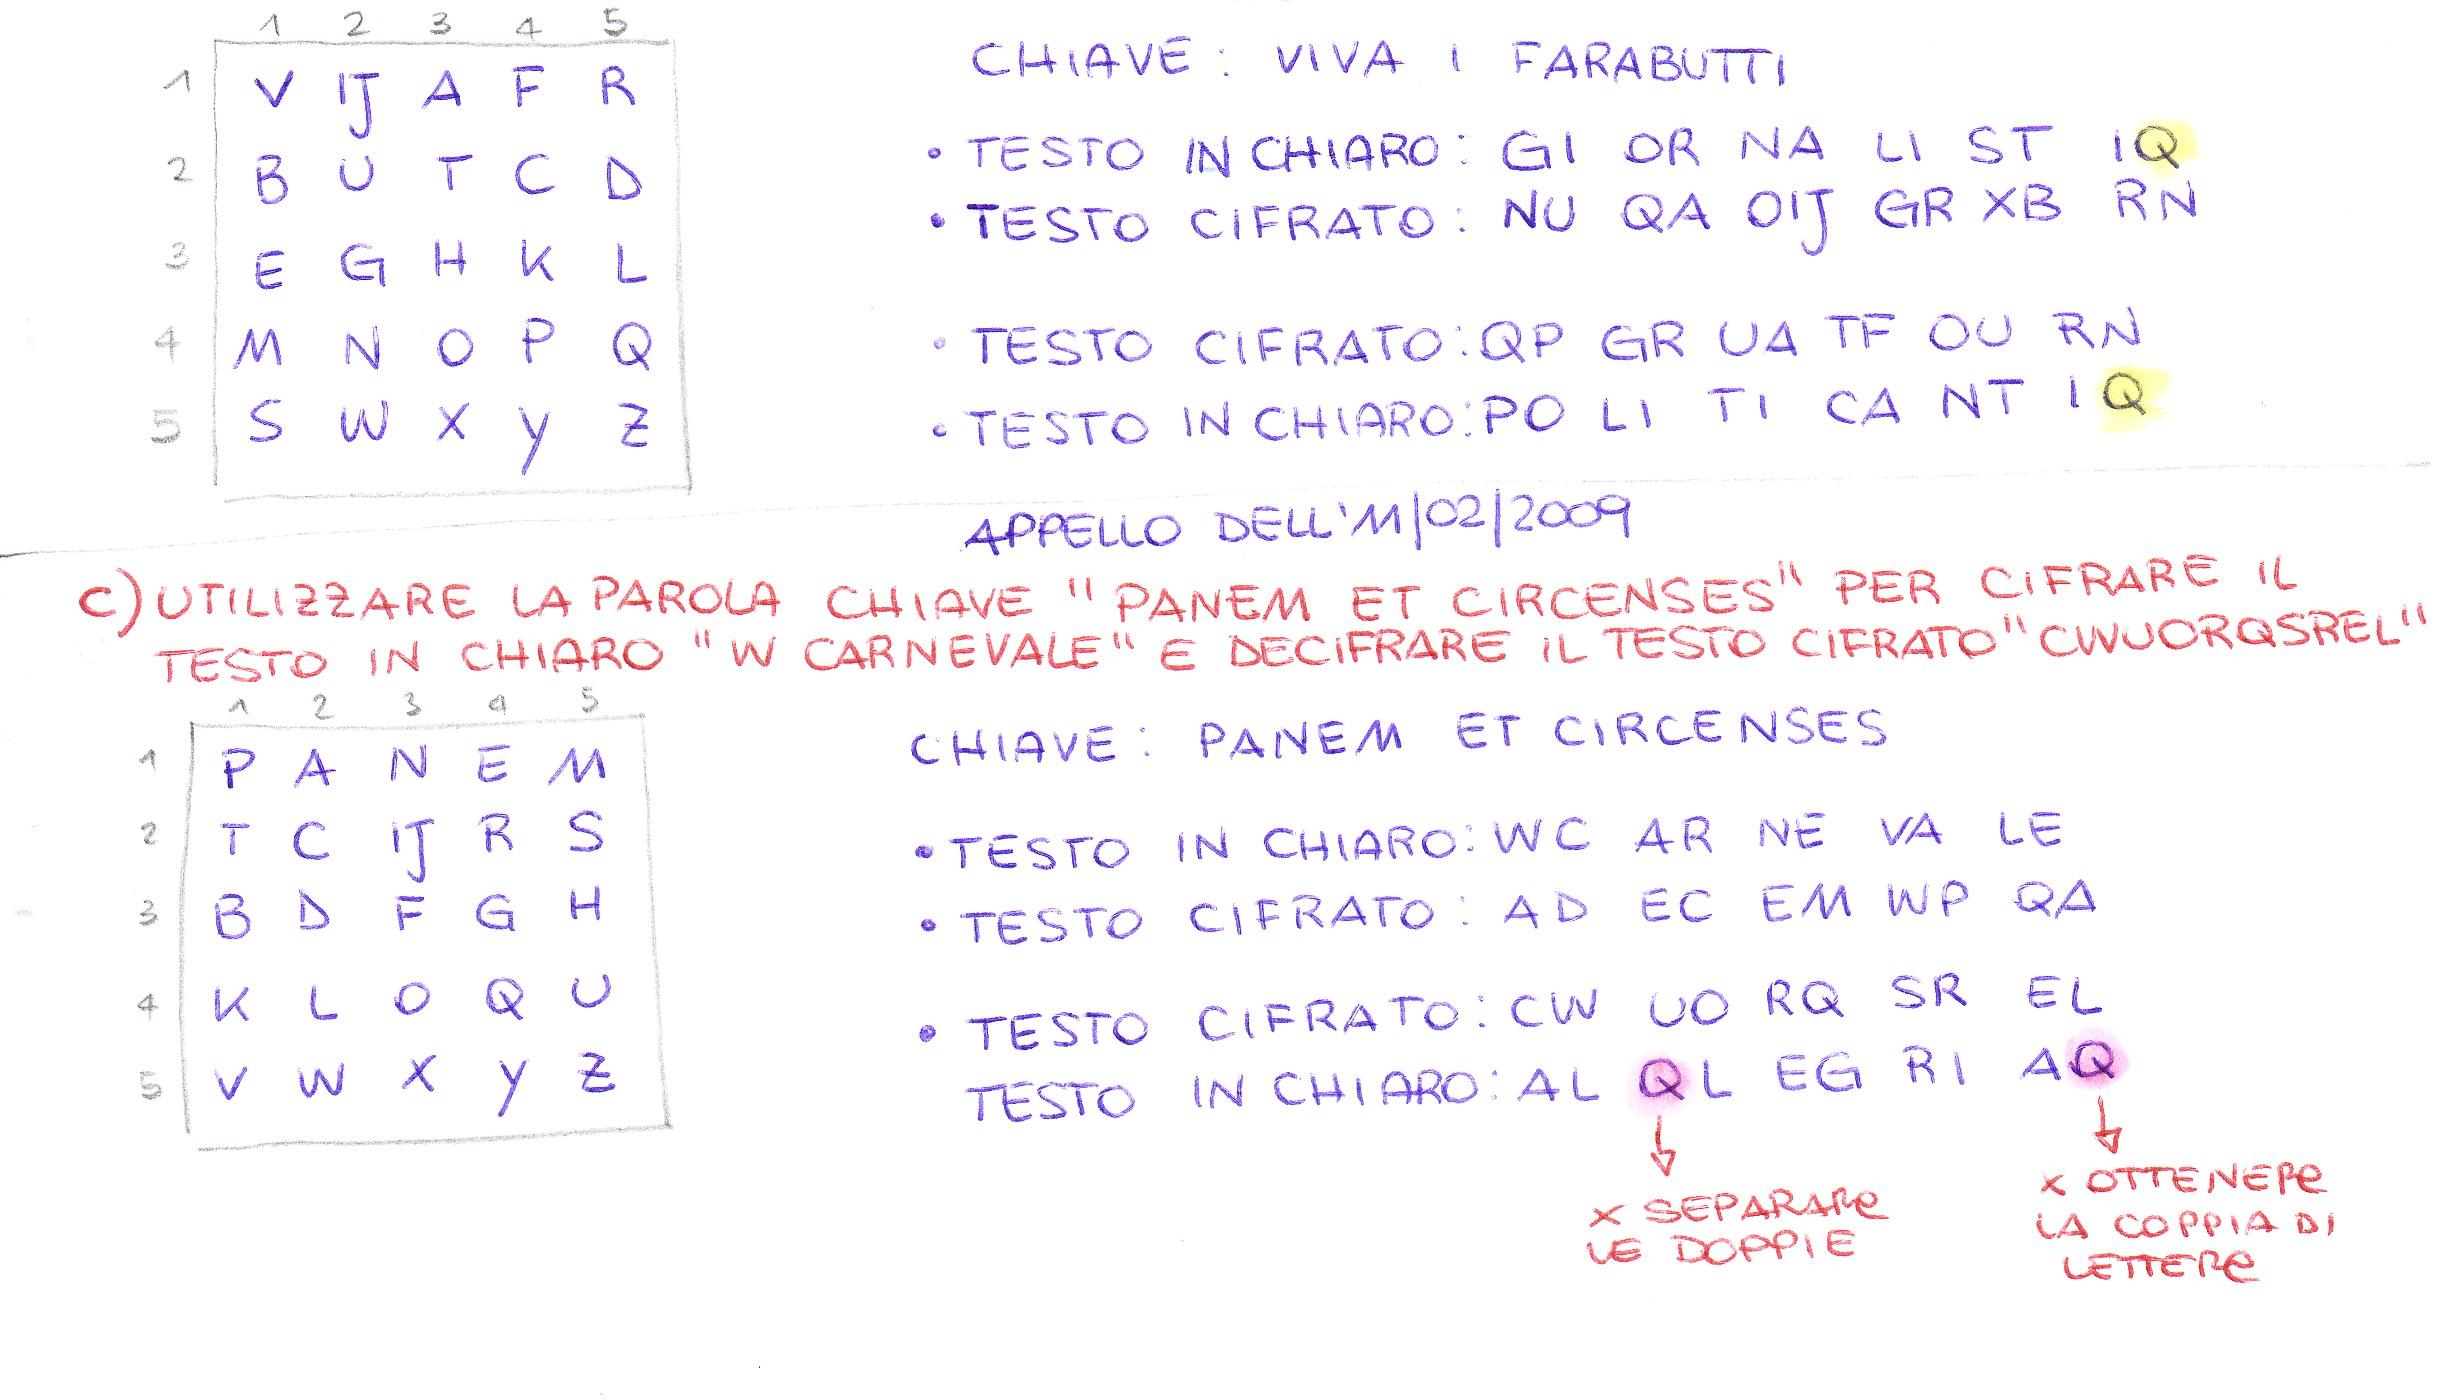 1 2 3 4 5
1 V IJ A F R
2 B U T C D
3 E G H K L
4 M N O P Q
5 S W X Y Z
CHIAVE: VIVA I FARABUTTI
• TESTO IN CHIARO: GI OR NA LI ST IQ
• TESTO CIFRATO: NU QA OIJ GR XB RN
• TESTO CIFRATO: QP GR UA TF OU RN
• TESTO IN CHIARO: PO LI TI CA NT IQ
APPELLO DELL'11/02/2009
C) UTILIZZARE LA PAROLA CHIAVE "PANEM ET CIRCENSES" PER CIFRARE IL
TESTO IN CHIARO "W CARNEVALE" E DECIFRARE IL TESTO CIFRATO "CWUORQSREL"
1 2 3 4 5
1 P A N E M
2 T C IJ R S
3 B D F G H
4 K L O Q U
5 V W X Y Z
CHIAVE: PANEM ET CIRCENSES
• TESTO IN CHIARO: WC AR NE VA LE
• TESTO CIFRATO: AD EC EM WP QA
• TESTO CIFRATO: CW UO RQ SR EL
TESTO IN CHIARO: AL QL EG RI AQ
X SEPARARE
LE DOPPIE
X OTTENERE
LA COPPIA DI
LETTERE